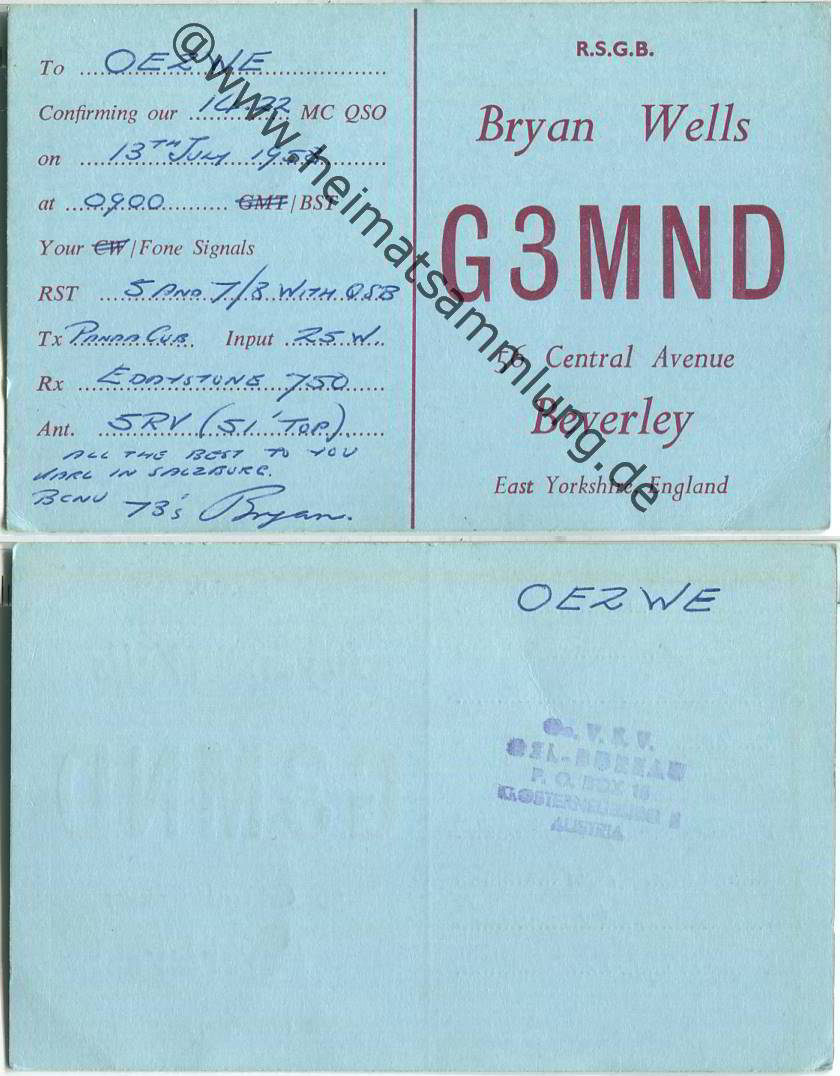 To OE2WE
Confirming our 14.22 MC QSO
on 13TH July
at 0900 GMT/BST
Your CW/Fone Signals
RST 5 AND 7/8 WITH QSB
Tx PANDA CUB Input 25 W.
Rx EDDYSTONE 750
Ant. 5RV (51' TOP)
ALL THE BEST TO YOU
KARL IN SALZBURG.
BCNU 73's Bryan.
R.S.G.B.
Bryan Wells
G3MND
Central Avenue
Beverley
East Yorkshire, England
@www.heimatsammlung.de
OE2WE
V. S. V.
QSL-BUREAU
P. O. BOX
KLOSTERNEUBURG
AUSTRIA